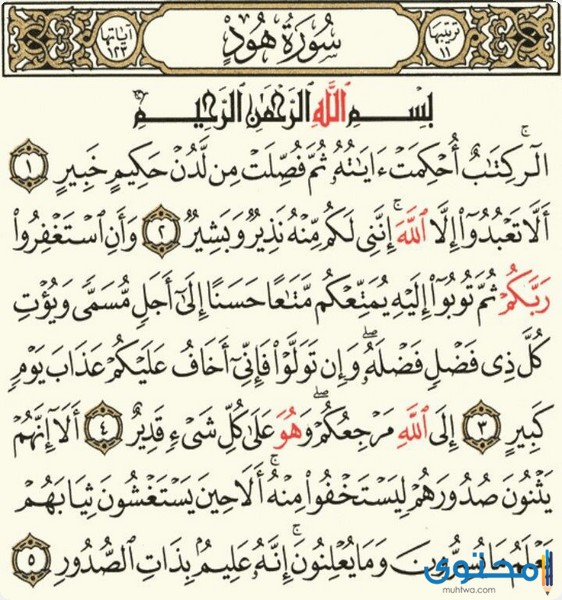 ترتيبها ١١
سُورَةُ هُودٍ
آياتها ١٢٣
بِسْمِ ٱللَّهِ ٱلرَّحْمَٰنِ ٱلرَّحِيمِ
الٓر ۚ كِتَٰبٌ أُحْكِمَتْ ءَايَٰتُهُۥ ثُمَّ فُصِّلَتْ مِن لَّدُنْ حَكِيمٍ خَبِيرٍ ١
أَلَّا تَعْبُدُوٓا۟ إِلَّا ٱللَّهَ ۚ إِنَّنِى لَكُم مِّنْهُ نَذِيرٌ وَبَشِيرٌ ٢ وَأَنِ ٱسْتَغْفِرُوا۟
رَبَّكُمْ ثُمَّ تُوبُوٓا۟ إِلَيْهِ يُمَتِّعْكُم مَّتَٰعًا حَسَنًا إِلَىٰٓ أَجَلٍ مُّسَمًّى وَيُؤْتِ
كُلَّ ذِى فَضْلٍ فَضْلَهُۥ ۖ وَإِن تَوَلَّوْا۟ فَإِنِّىٓ أَخَافُ عَلَيْكُمْ عَذَابَ يَوْمٍ
كَبِيرٍ ٣ إِلَى ٱللَّهِ مَرْجِعُكُمْ ۖ وَهُوَ عَلَىٰ كُلِّ شَىْءٍ قَدِيرٌ ٤ أَلَآ إِنَّهُمْ
يَثْنُونَ صُدُورَهُمْ لِيَسْتَخْفُوا۟ مِنْهُ ۚ أَلَا حِينَ يَسْتَغْشُونَ ثِيَابَهُمْ
يَعْلَمُ مَا يُسِرُّونَ وَمَا يُعْلِنُونَ ۚ إِنَّهُۥ عَلِيمٌۢ بِذَاتِ ٱلصُّدُورِ ٥
محتوى
muhtwa.com